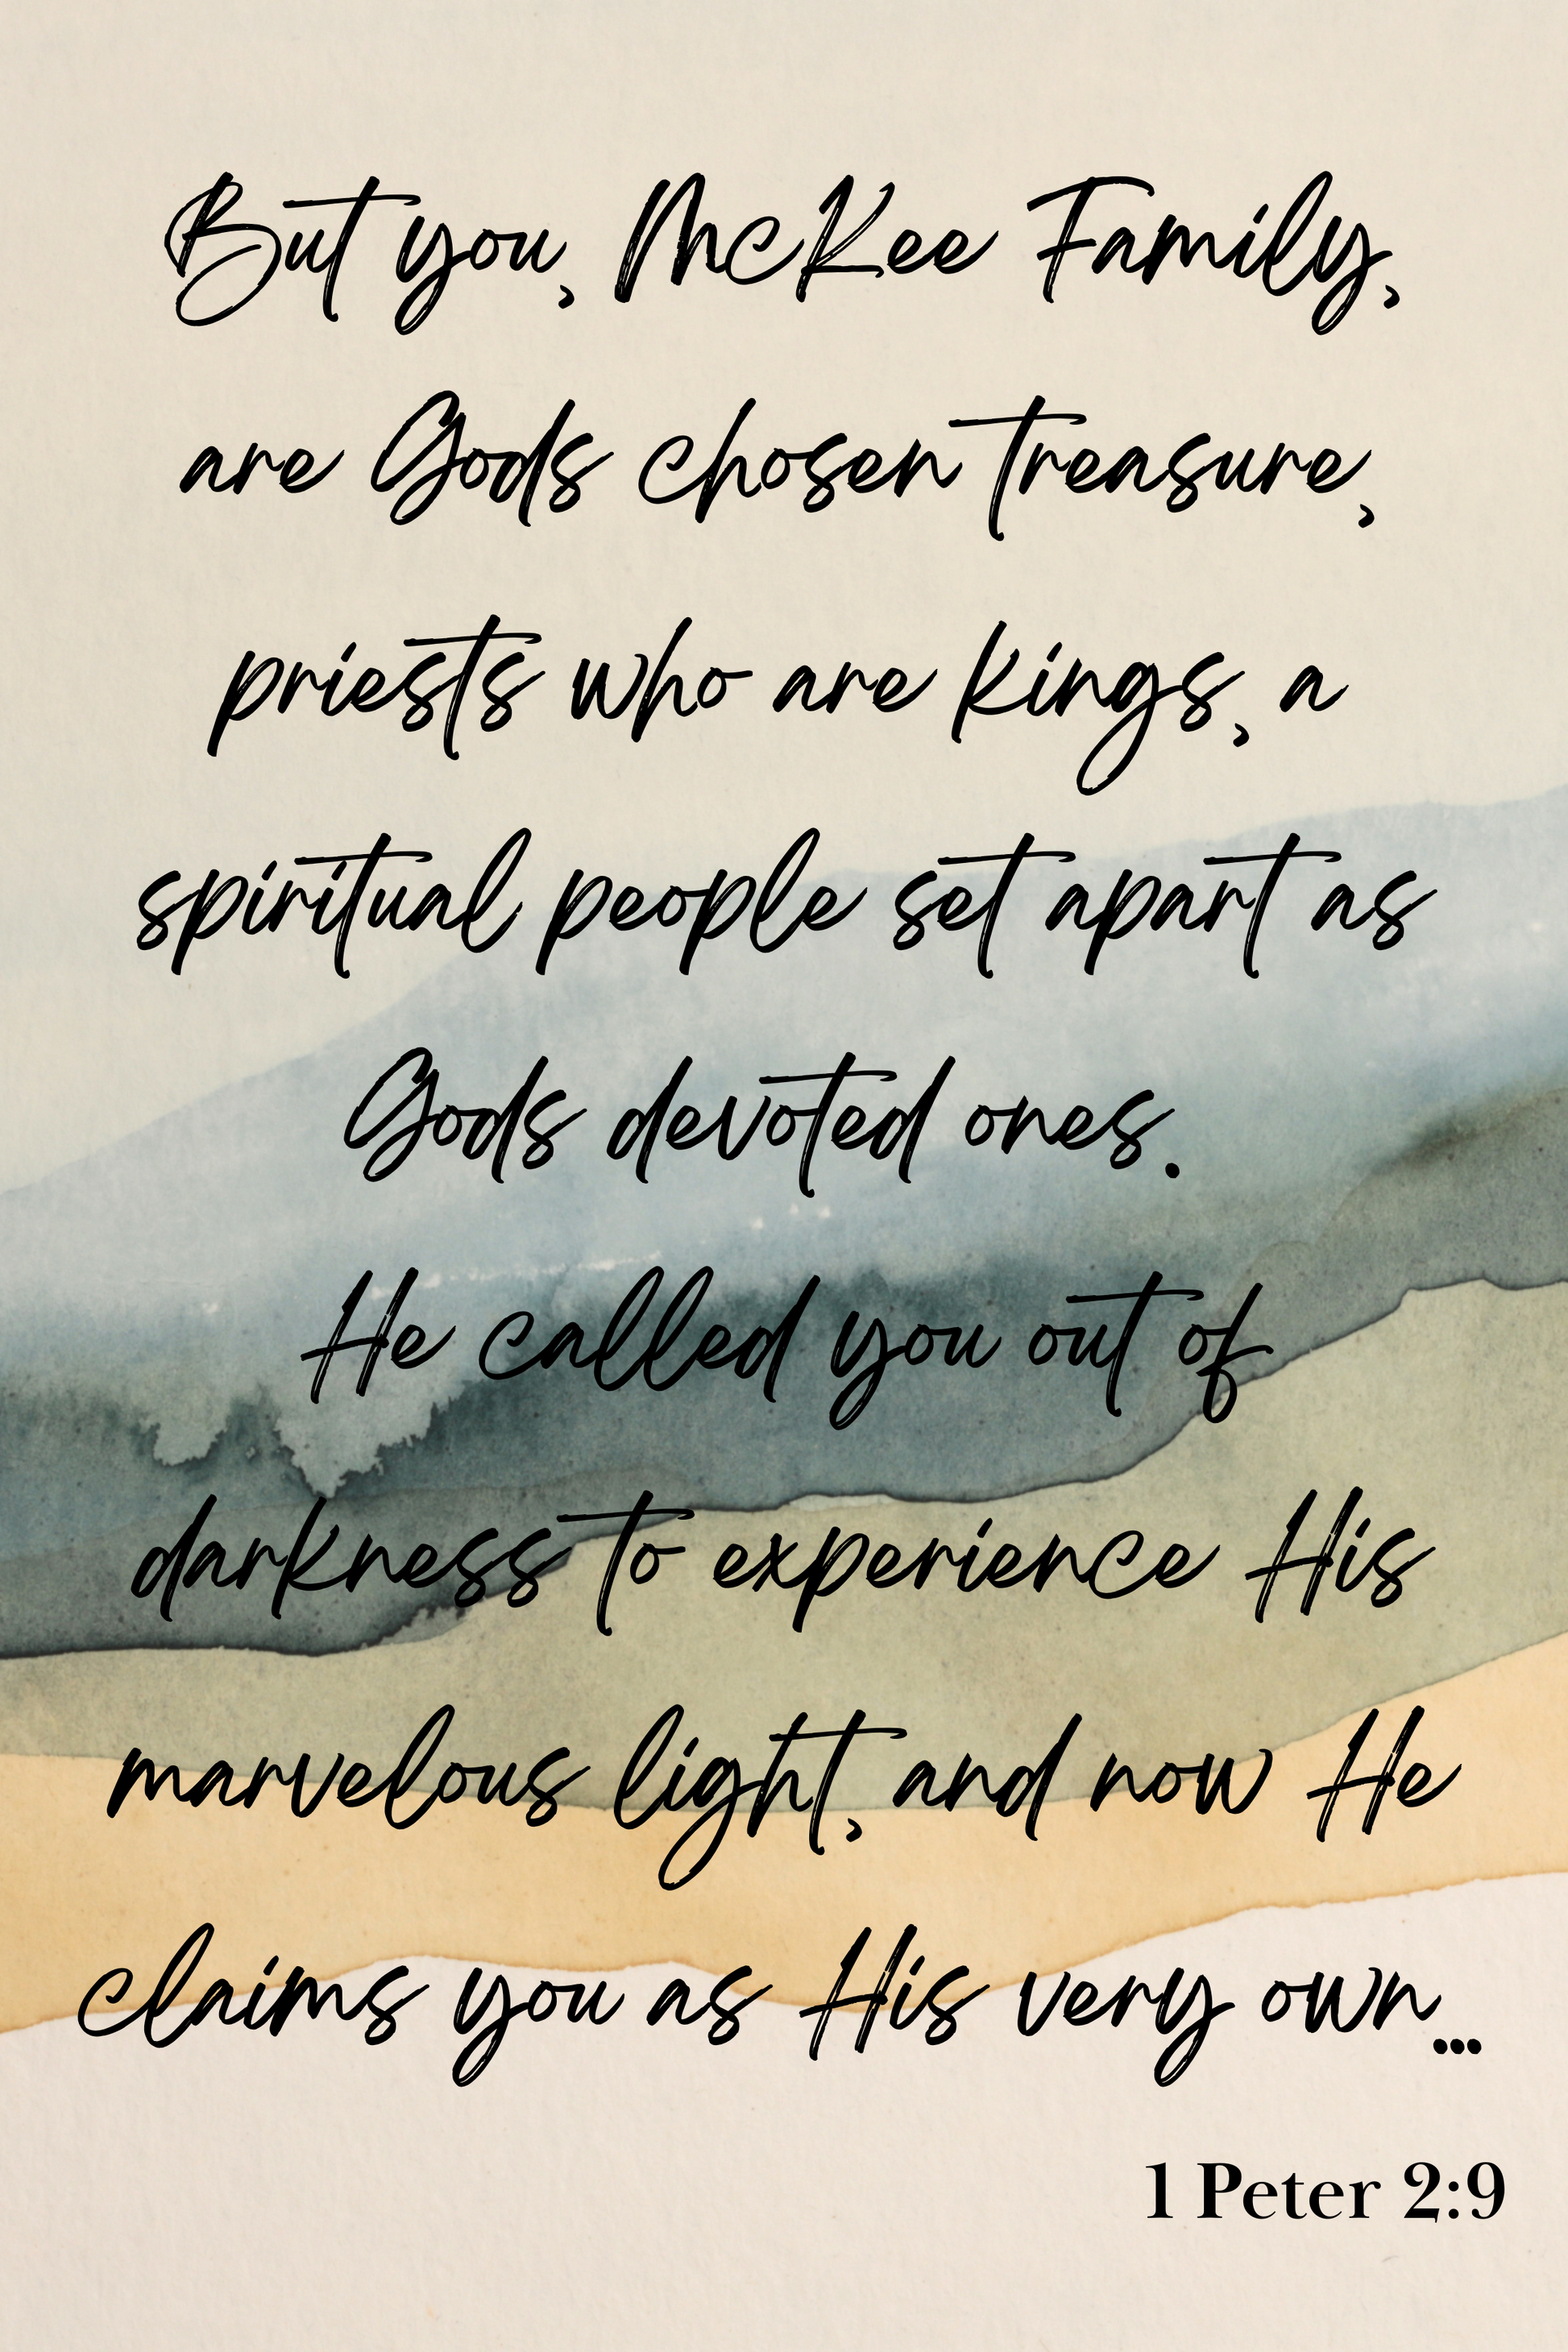 But you, McKee Family,
are Gods chosen treasure,
priests who are kings, a
spiritual people set apart as
Gods devoted ones.
He called you out of
darkness to experience His
marvelous light, and now He
claims you as His very own...
1 Peter 2:9